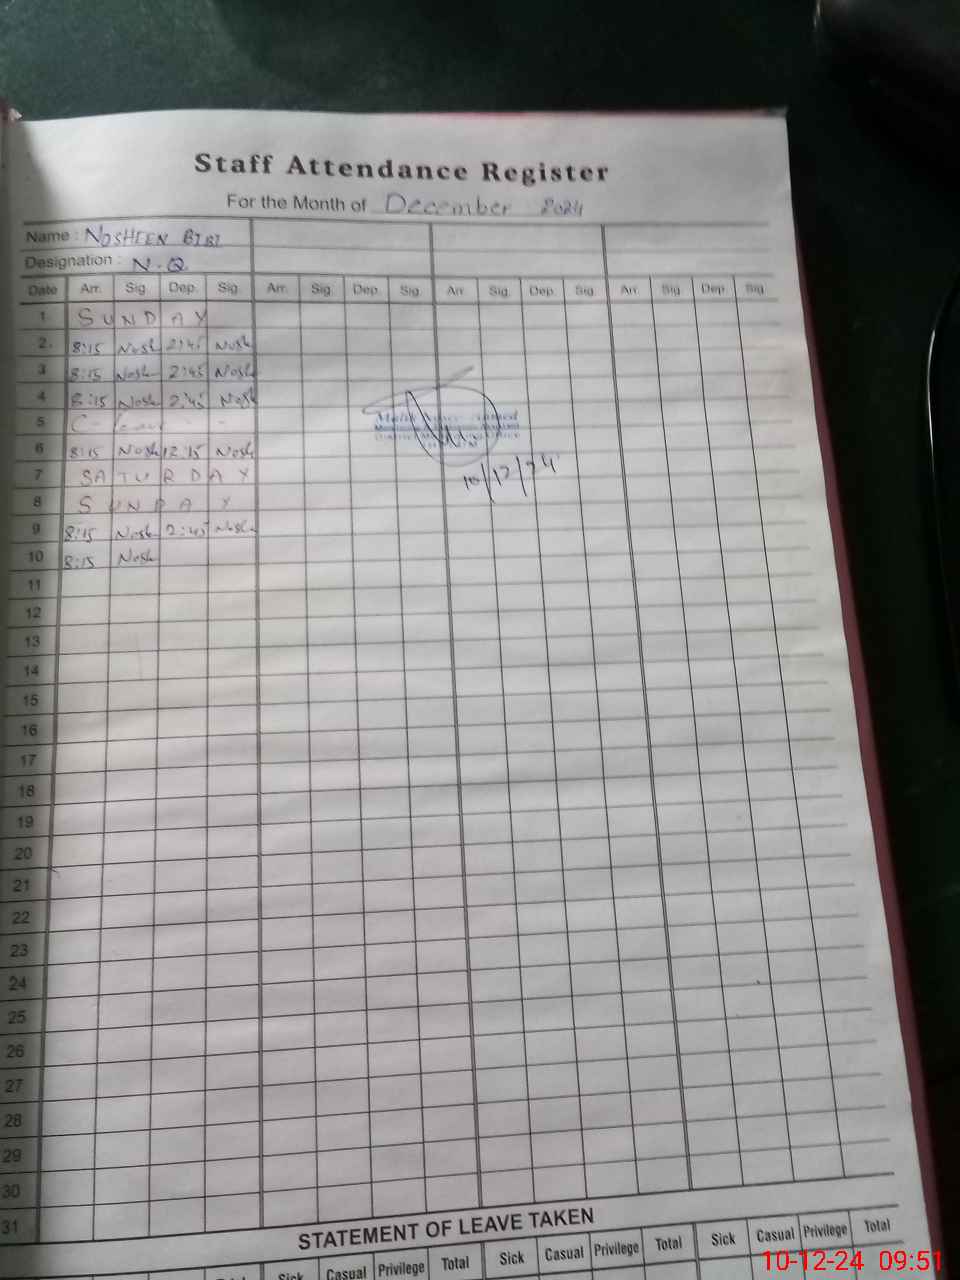 Staff Attendance Register
For the Month of December 2024
Name : NOSHEEN BIBI
Designation : N.Q
Date Arr. Sig. Dep. Sig. Arr. Sig. Dep. Sig. Arr. Sig. Dep. Sig. Arr. Sig. Dep. Sig.
1. SUNDAY
2. 8:15 Nosh 2:45 Nosh
3 8:15 Nosh 2:45 Nosh
4 8:15 Nosh 2:45 Nosh
5 C- leave - -
6 8:15 Nosh 12:15 Nosh
7 SATURDAY
8 SUNDAY
9 8:15 Nosh 2:45 Nosh
10 8:15 Nosh
10/12/24
11
12
13
14
15
16
17
18
19
20
21
22
23
24
25
26
27
28
29
30
31
STATEMENT OF LEAVE TAKEN
Total Sick Casual Privilege Total Sick Casual Privilege Total Sick Casual Privilege Total
10-12-24 09:51